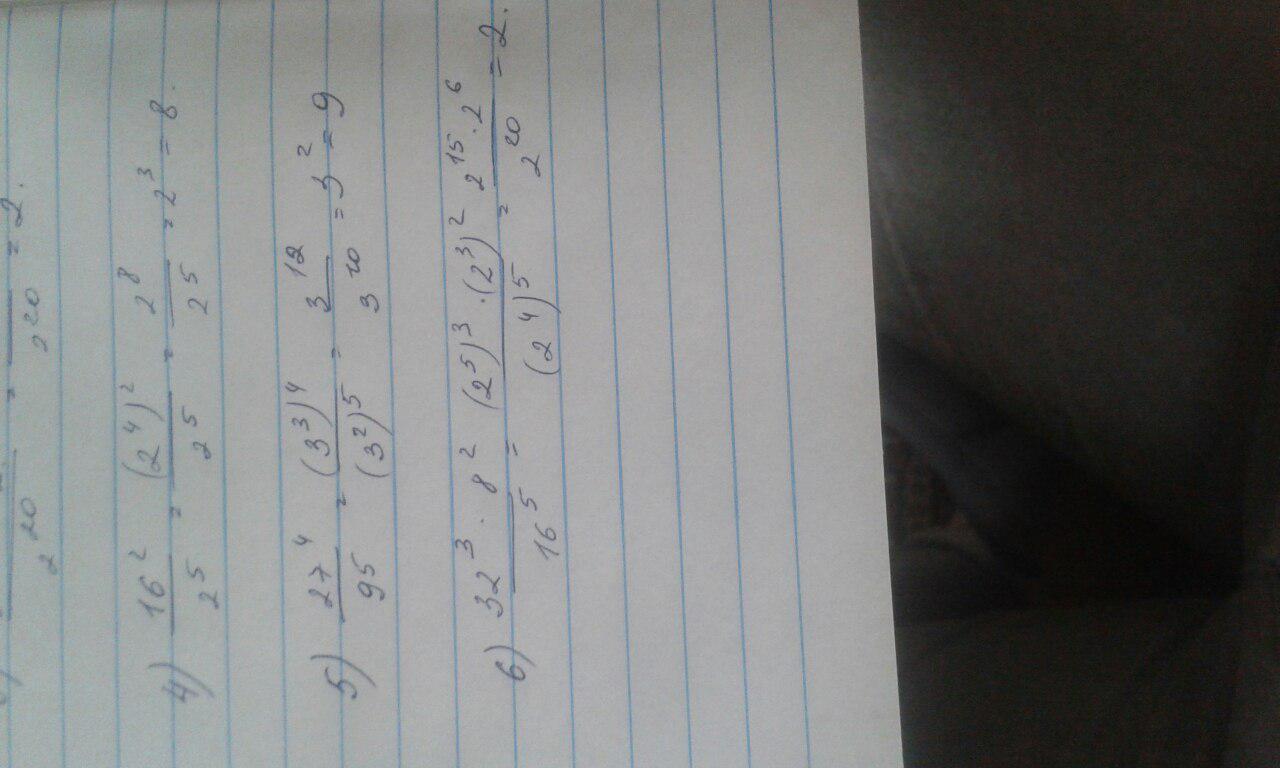 2^20 = 2^20 = 2.
4) 16^2 / 2^5 = (2^4)^2 / 2^5 = 2^8 / 2^5 = 2^3 = 8.
5) 27^4 / 95 = (3^3)^4 / (3^2)^5 = 3^12 / 3^10 = 3^2 = 9
6) 32^3 · 8^2 / 16^5 = (2^5)^3 · (2^3)^2 / (2^4)^5 = 2^15 · 2^6 / 2^20 = 2.